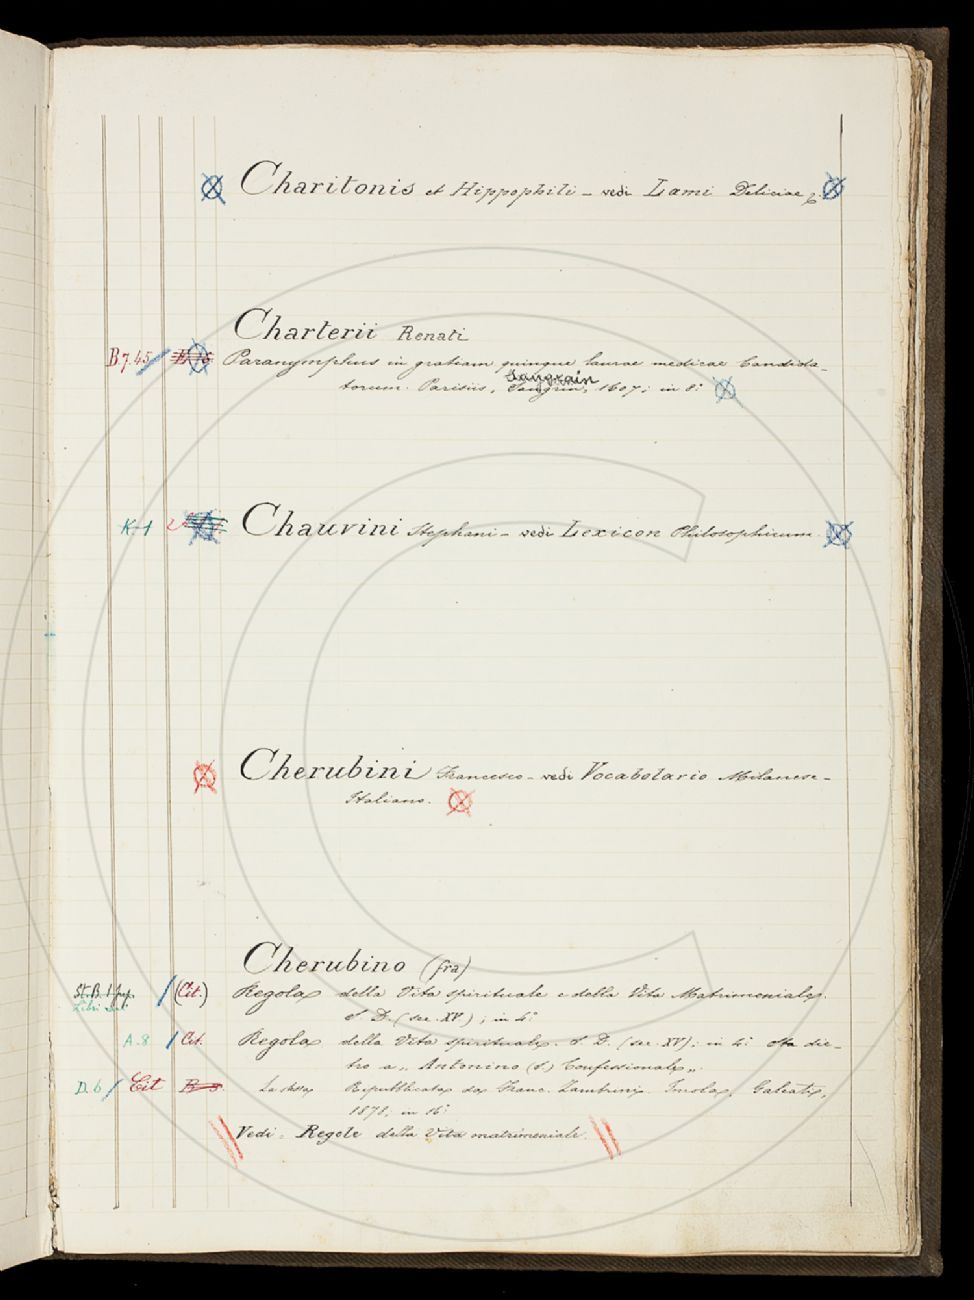 Charitonis et Hippophili - vedi Lami Deliciae &.
Charterii Renati
B.7.45 / Paranymphus in gratiam quinque laurae medicae Candida-
Langrain
torum. Parisiis, 1607; in 8.°
K-1 Chauvini Stephani - vedi Lexicon Philosophicum.
Cherubini Francesco - vedi Vocabolario Milanese-
Italiano.
Cherubino (fra)
St. B. / (Cit.) Regola della Vita spirituale e della Vita Matrimoniale.
S. D. (sec. XV); in 4.°
A.8 / Cit. Regola della Vita spirituale. S. D. (sec. XV); in 4.° Sta die-
tro a „ Antonino (S.) Confessionale „.
D.6 / Cit La stessa Repubblicata da Franc. Zambrini. Imola, Galeati,
1878, in 16.°
Vedi. Regole della Vita matrimoniale.